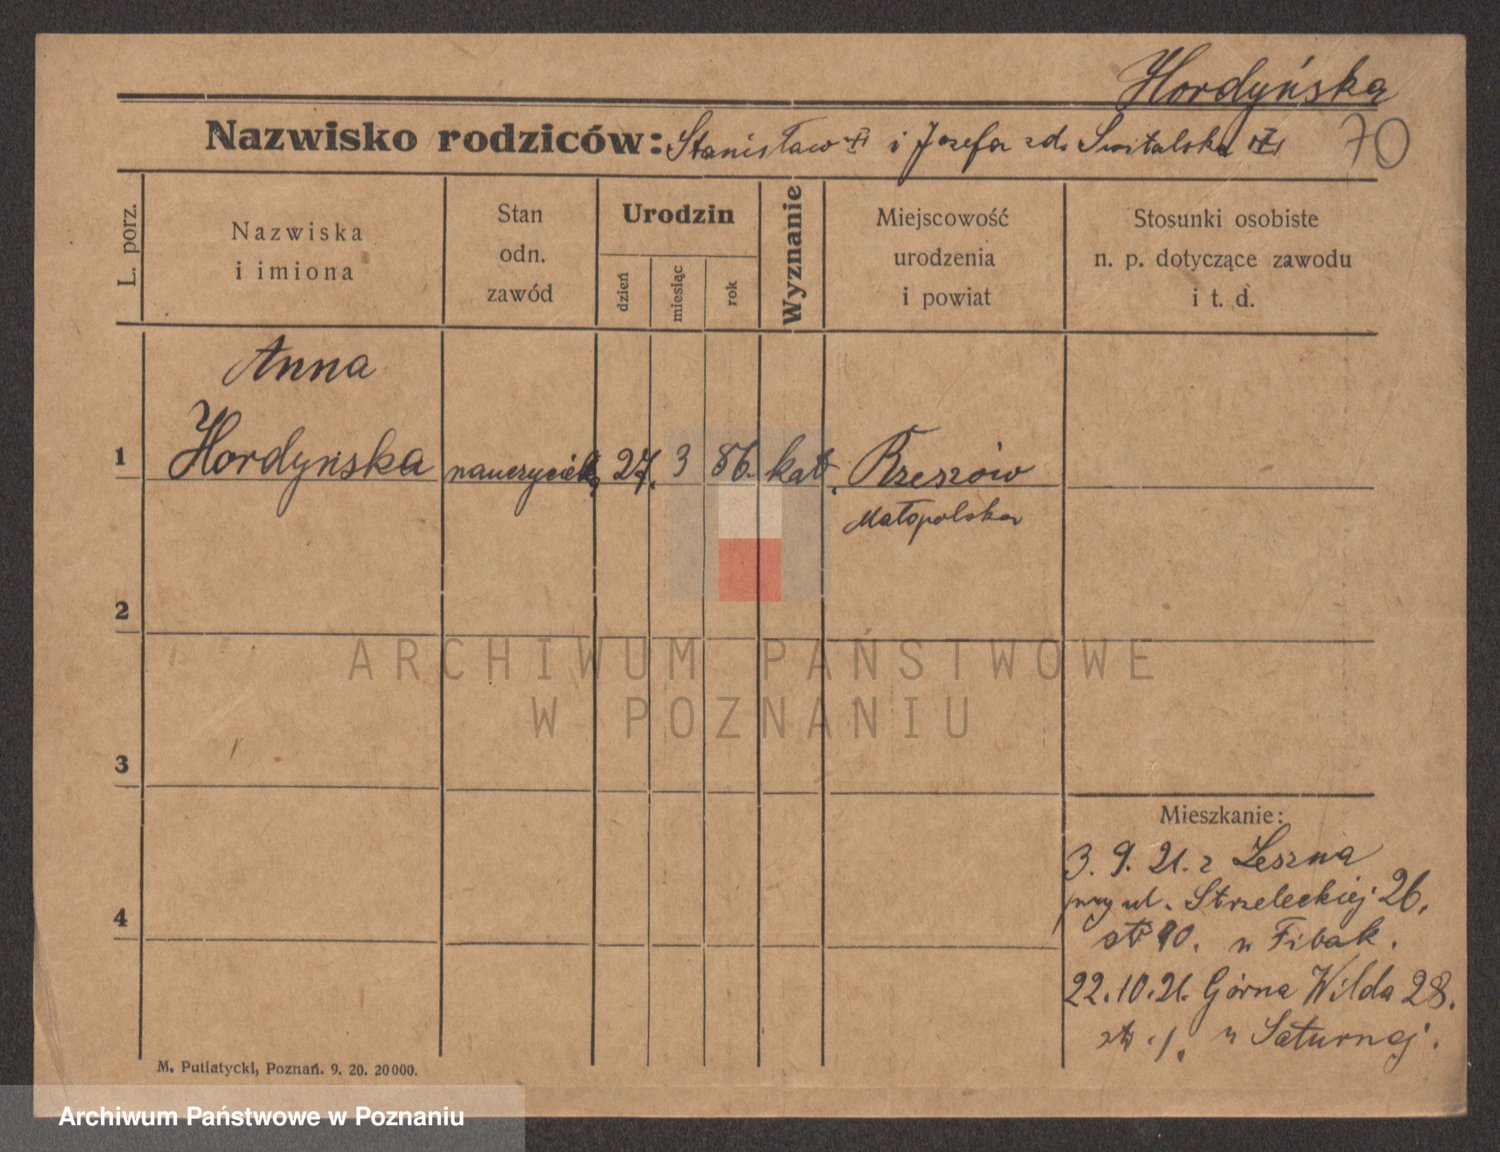 Hordyńska
Nazwisko rodziców: Stanisław i Józefa zd. Switalska
70
L. porz.
Nazwiska
i imiona
Stan
odn.
zawód
Urodzin
dzień
miesiąc
rok
Wyznanie
Miejscowość
urodzenia
i powiat
Stosunki osobiste
n. p. dotyczące zawodu
i t. d.
Anna
1 Hordyńska nauczycielka 27. 3 86. kat. Rzeszów
Małopolska
2
3
4
Mieszkanie:
3. 9. 21. z Leszna
przy ul. Strzeleckiej 26.
u Fibak.
22.10.21. Górna Wilda 28.
u Saturnej.
M. Putiatycki, Poznań. 9. 20. 20000.
ARCHIWUM PAŃSTWOWE
W POZNANIU
Archiwum Państwowe w Poznaniu